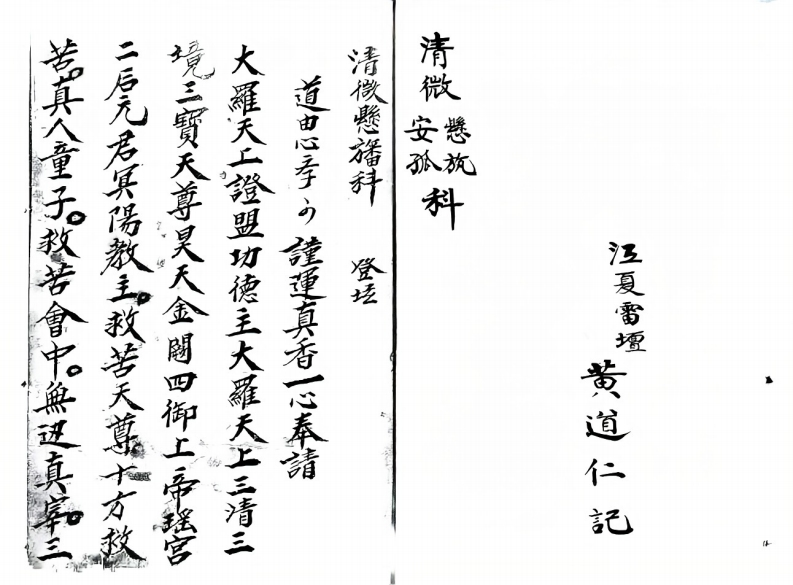 江夏雷壇
黄道仁記
清微懸旛安孤科
清微懸旛科 登坛
道由心孝
謹運真香一心奉請
大羅天上證盟功德主大羅天上三清三
境三寶天尊昊天金闕四御上帝瑤宮
二后元君冥陽教主。救苦天尊十方救
苦。真人童子。救苦會中。無边真宰。三